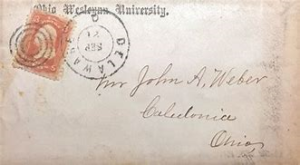 Ohio Wesleyan University.
DELAWARE O
SEP
21
Mr John A. Weber
Caledonia
Ohio